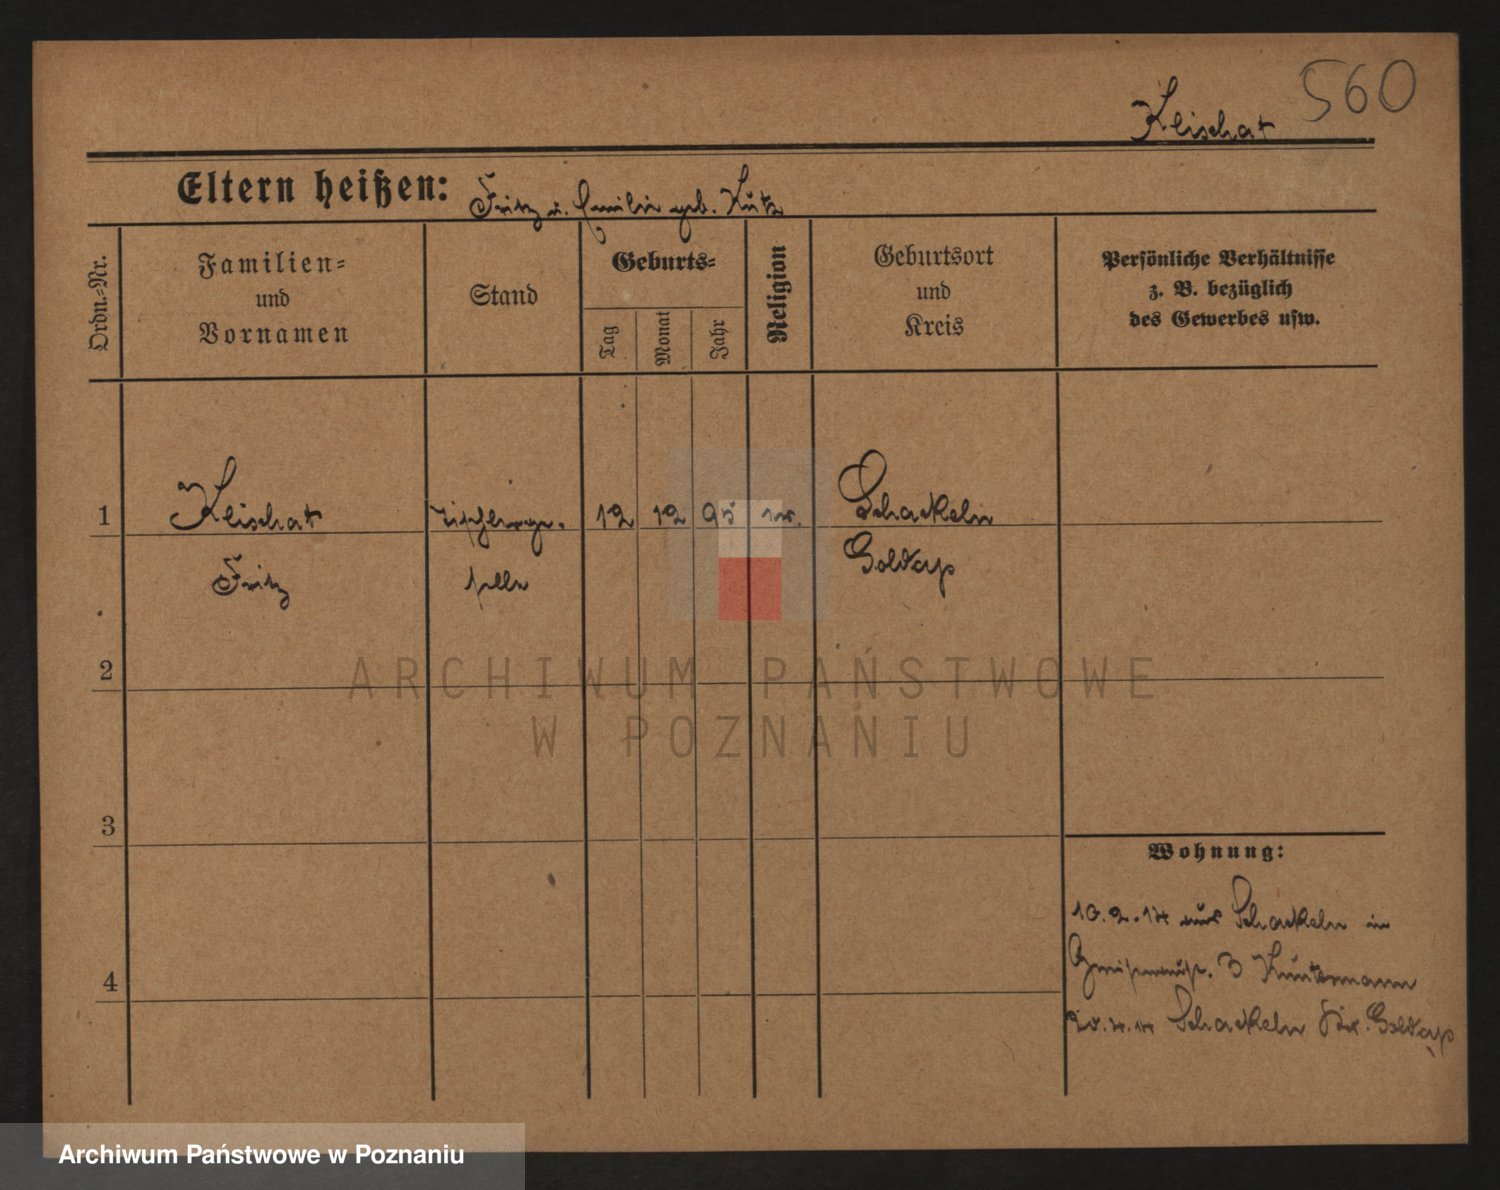 560
Kleischat
Eltern heißen: Fritz u. Emilie geb. Kutz
Ordn.-Nr.
Familien- und Vornamen
Stand
Geburts-
Tag
Monat
Jahr
Religion
Geburtsort und Kreis
Persönliche Verhältnisse
z. B. bezüglich
des Gewerbes usw.
1 Kleischat Tischlerge- 12 12 95 ev. Schackeln
Fritz selle Goldap
2
3
4
Wohnung:
10.2.14 aus Schackeln in
3
20.4.14 Schackeln Kr. Goldap
ARCHIWUM PAŃSTWOWE
W POZNANIU
Archiwum Państwowe w Poznaniu